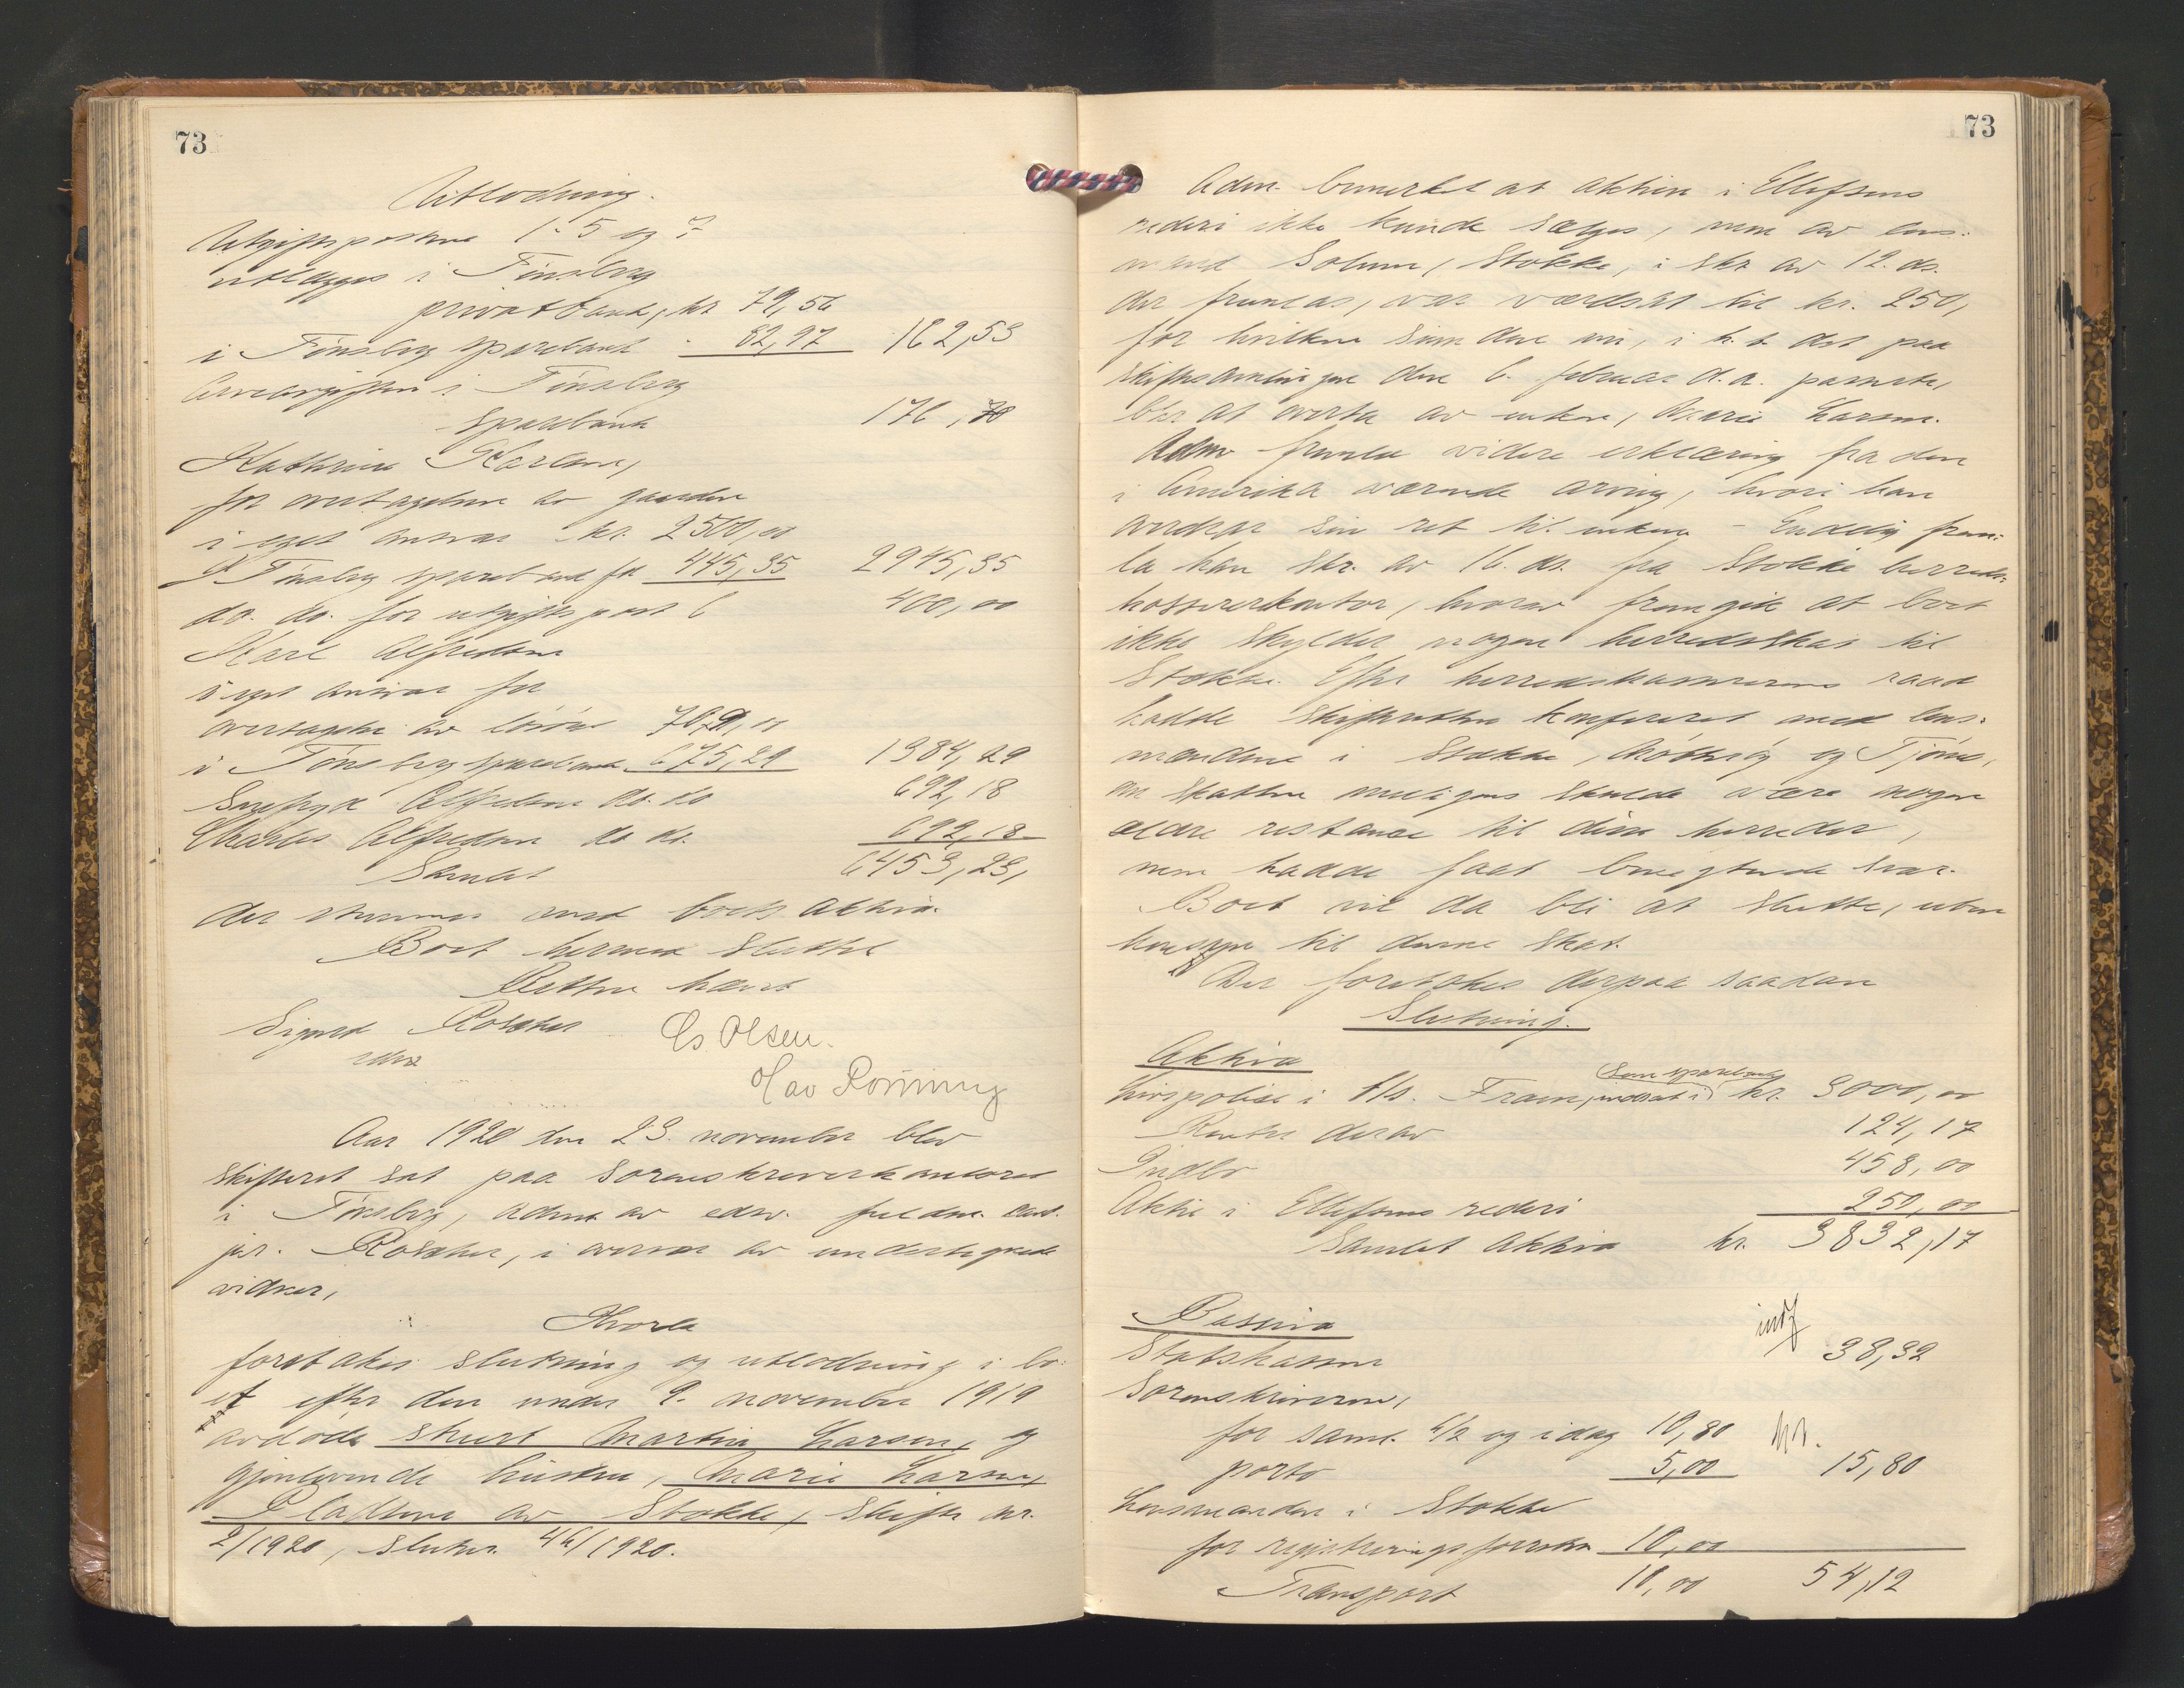 73
Utlodning.
Utgiftsposterne 1-5 og 7
utlægges i Tønsberg
privatbank, kr 79,56
i Tønsberg sparebank - 82,97 162,53
Arveavgiften i Tønsberg
sparebank 176,70
Kathrine Karlsen,
for overtagelsen av gaarden
i eget ansvar kr. 2500,00
I Tønsberg sparebank 445,35 2945,35
do. do. for utgiftspost 6 400,00
Karl Alfredsen
i eget ansvar for
overtagelse av løsøre 709,00
i Tønsberg sparebank 675,29 1384,29
Alfredsen do. do 692,18
Charles Alfredsen do do. 692,18
Samlet 6453,23,
der stemmer med boets aktiva.
Boet hermed sluttet
Retten hævet
Sigurd Roscher
edsv
Cs. Olsen.
Olav Rønning
Aar 1920 den 23. november blev
skifteret sat paa sorenskriverkontoret
i Tønsberg, adm. av edsv. fuldm. cand.
jur. Roscher, i overvær av undertegnede
vidner,
Hvorda
foretakes slutning og utlodning i bo-
et efter den under 9. november 1919
avdøde skurt Martin Larsen, og
gjenlevende hustru, Marie Larsen,
Pladsen av Stokke, skifte nr.
2/1920, slutn. 46/1920.
73
Adm. bemerket at aktien i Ellefsens
rederi ikke kunde sælges, men av lens-
mand Solum, Stokke, i skr. av 12. ds.
der fremlas, var værdsat til kr. 250,
for hvilken sum den nu, i h. t. det paa
skiftesamlingen den 6. februar d.a. passerte,
blir at overta av enken, Marie Larsen.
Adm fremla videre erklæring fra den
i Amerika værende arving, hvori han
avdrar sin ret til enken - Endelig frem-
la han skr. av 16. ds. fra Stokke herreds-
kassererkontor, hvorav fremgik at boet
ikke skylder nogen herredsskat til
Stokke. Efter herredskassererens raad
hadde skifteretten konferert med lens-
mændene i Stokke, Nøtterøy og Tjøme,
om skatten muligens skulde være nogen
ældre restance til disse herreder,
men hadde faat benegtende svar.
Boet vil da bli at slutte, uten
hensyn til denne skat.
Der foretokes derpaa saadan
Slutning.
Aktiva
Livspolise i A/s. Fram, indsat i Sem sparebank kr. 3000,00
Renter derav 124,17
Indbo 458,00
Aktie i Ellefsens rederi 250,00
Samlet aktiva kr. 3832,17
Passiva
Statskassen indf 38,32
Sorenskriveren,
for saml. 6/2 og idag 10,80
porto 5,00 15,80
Lensmanden i Stokke
for registreringsforretn 10,00
Transport 10,00 54,12